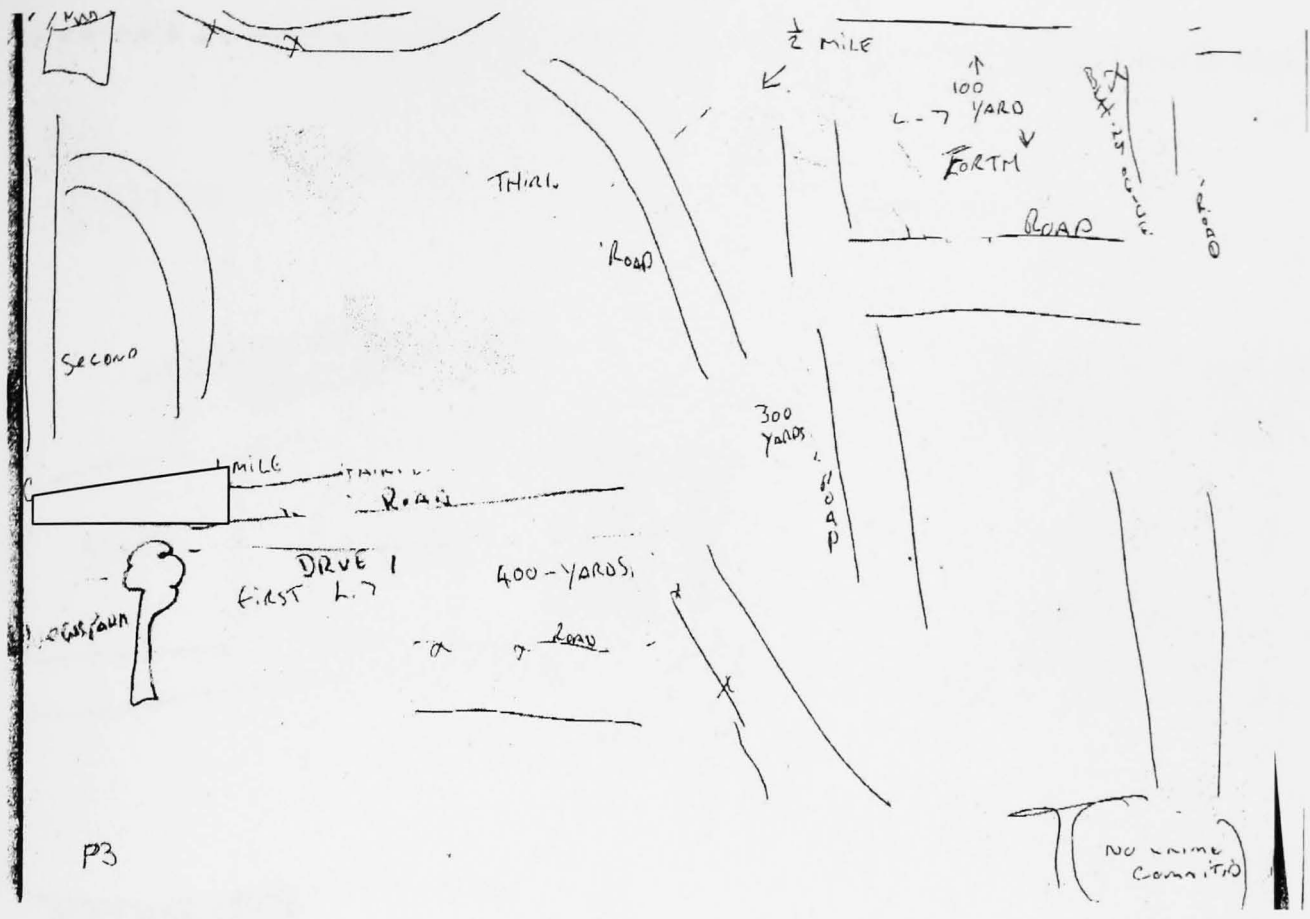 ½ MILE
100
YARD
L-7
FORTM
ROAD
ROAD
THIRL
ROAD
SECOND
300
YARDS
ROAD
MILE
ROAD
DRVE 1
FIRST L.7
400-YARDS,
ROAD
P3
NO CRIME
COMMITID